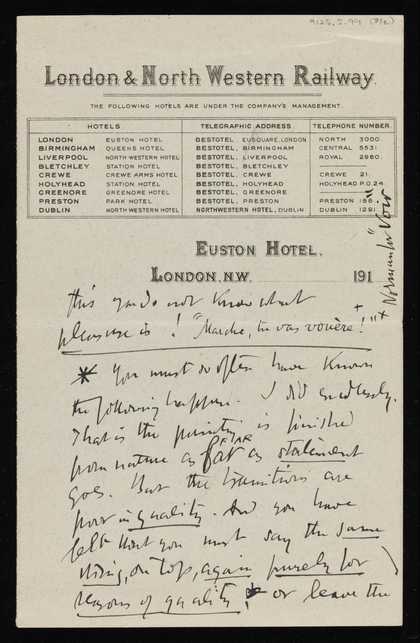 9125.5.99 (2/2)
London & North Western Railway.
THE FOLLOWING HOTELS ARE UNDER THE COMPANY'S MANAGEMENT.
HOTELS TELEGRAPHIC ADDRESS TELEPHONE NUMBER.
LONDON EUSTON HOTEL BESTOTEL, EUSQUARE, LONDON NORTH 3000.
BIRMINGHAM QUEENS HOTEL BESTOTEL, BIRMINGHAM CENTRAL 5531
LIVERPOOL NORTH WESTERN HOTEL BESTOTEL, LIVERPOOL ROYAL 2960.
BLETCHLEY STATION HOTEL BESTOTEL, BLETCHLEY
CREWE CREWE ARMS HOTEL BESTOTEL, CREWE CREWE 21.
HOLYHEAD STATION HOTEL BESTOTEL, HOLYHEAD HOLYHEAD P.O. 24
GREENORE GREENORE HOTEL BESTOTEL, GREENORE
PRESTON PARK HOTEL BESTOTEL, PRESTON PRESTON 166
DUBLIN NORTH WESTERN HOTEL NORTHWESTERN HOTEL, DUBLIN DUBLIN 1291
EUSTON HOTEL.
LONDON, N.W. 191
+ Norman for "Voir"
this you do not know what
pleasure is! "Marche, tu vas vouère!" +
* You must so often have known
the following happen. I did endlessly.
That is the painting is finished
from nature as far FAR as statement
goes. But the transitions are
poor in quality. And you have
felt that you must say the same
thing, on top, again purely for
reasons of quality, or leave the